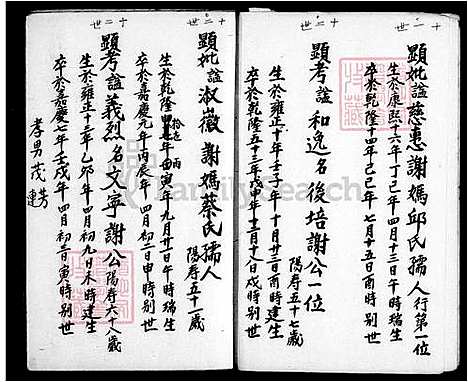 十一世
顯妣諡慈惠謝媽邱氏孺人行第一位
生於康熙十六年丁巳年四月十三日午時瑞生
卒於乾隆十四年己巳年七月十五日酉時别世
十二世
顯考諡和逸名後培謝公一位
陽寿五十七歲
生於雍正十年壬子年十月廿三日酉時建生
卒於乾隆五十三年戊申年十二月十八日戌時别世
十二世
顯妣諡淑薇謝媽蔡氏孺人
陽寿五十一歲
生於乾隆 年 寅年九月廿一日午時瑞生
卒於嘉慶元年丙辰年四月初三日申時别世
十三世
顯考諡義烈名文寧謝公陽寿六十八歲
生於雍正十三年乙卯年四月初九日未時建生
卒於嘉慶七年壬戌年四月初三日寅時别世
孝男茂芳
連